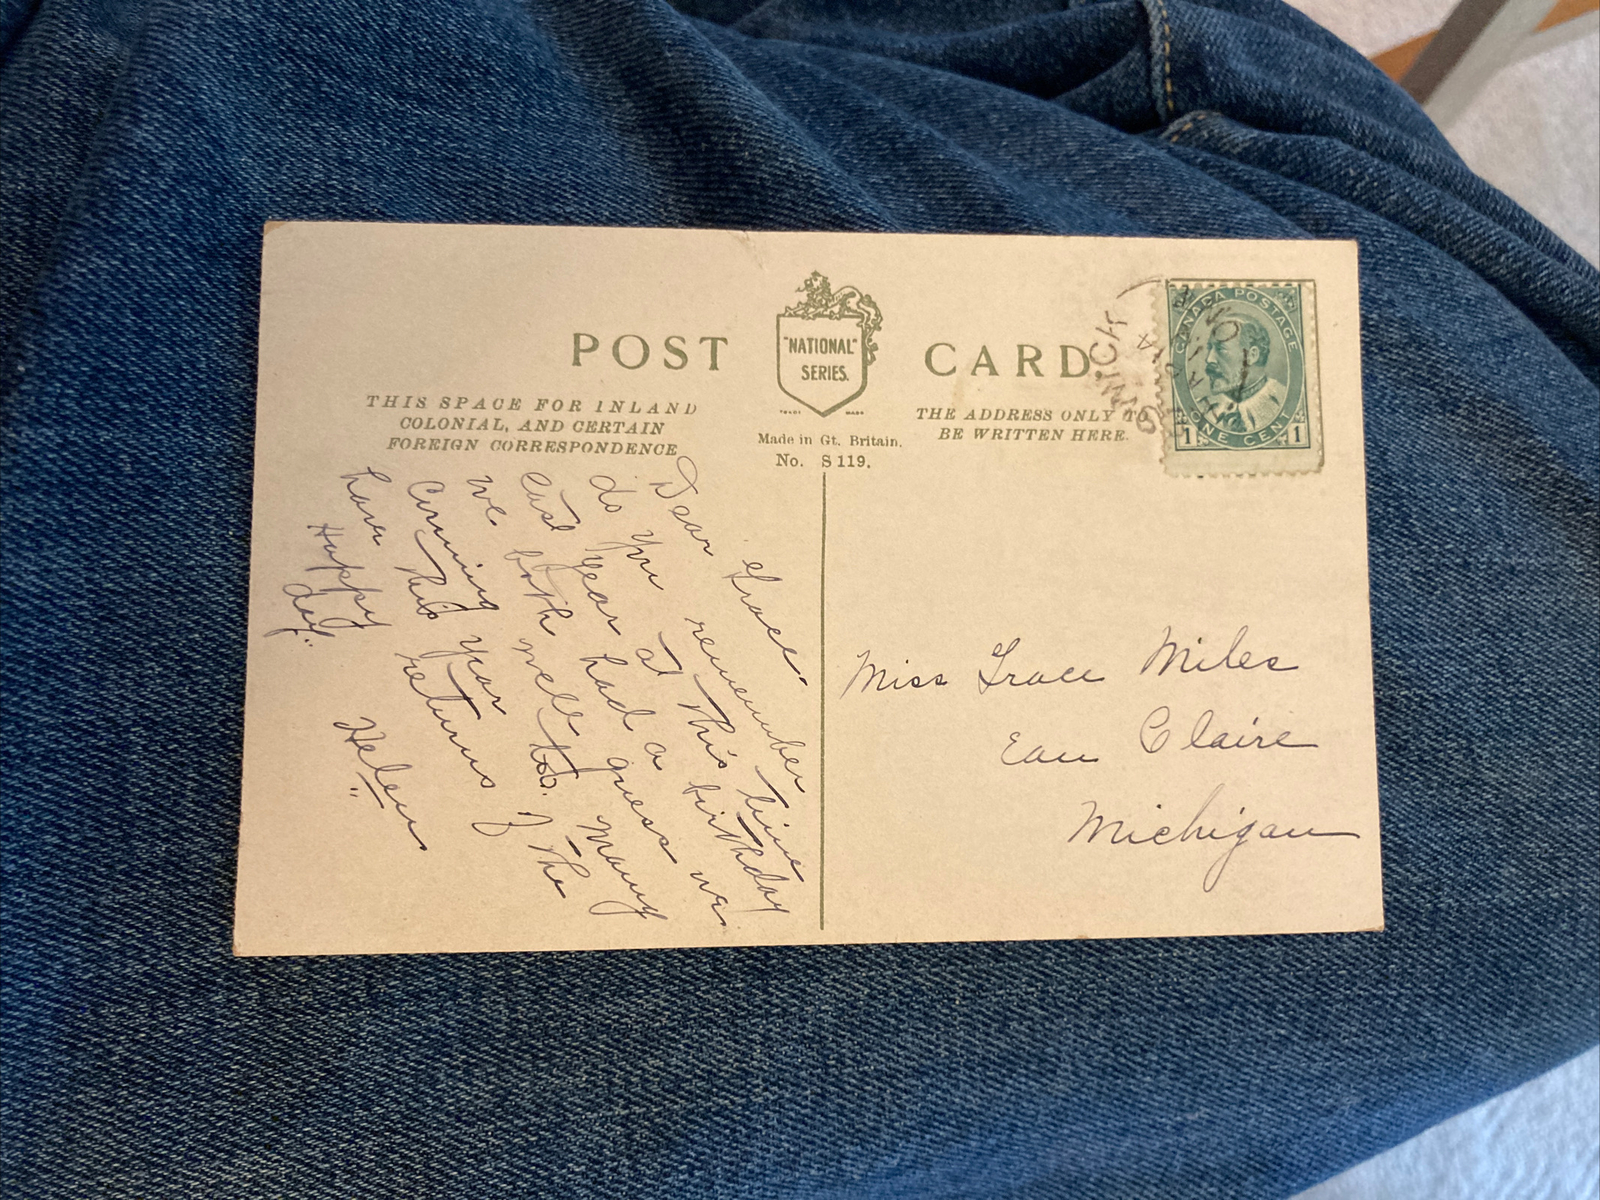 POST CARD
"NATIONAL" SERIES.
TRADE MARK
THIS SPACE FOR INLAND
COLONIAL, AND CERTAIN
FOREIGN CORRESPONDENCE
Made in Gt. Britain.
No. S 119.
THE ADDRESS ONLY TO
BE WRITTEN HERE.
CANADA POSTAGE
1 ONE CENT 1
Dear Grace.
do you remember
last year at this time
we both had a birthday
coming well guess we
have this year too. Many
Happy returns of the
day.
Helen
Miss Grace Miles
Eau Claire
Michigan